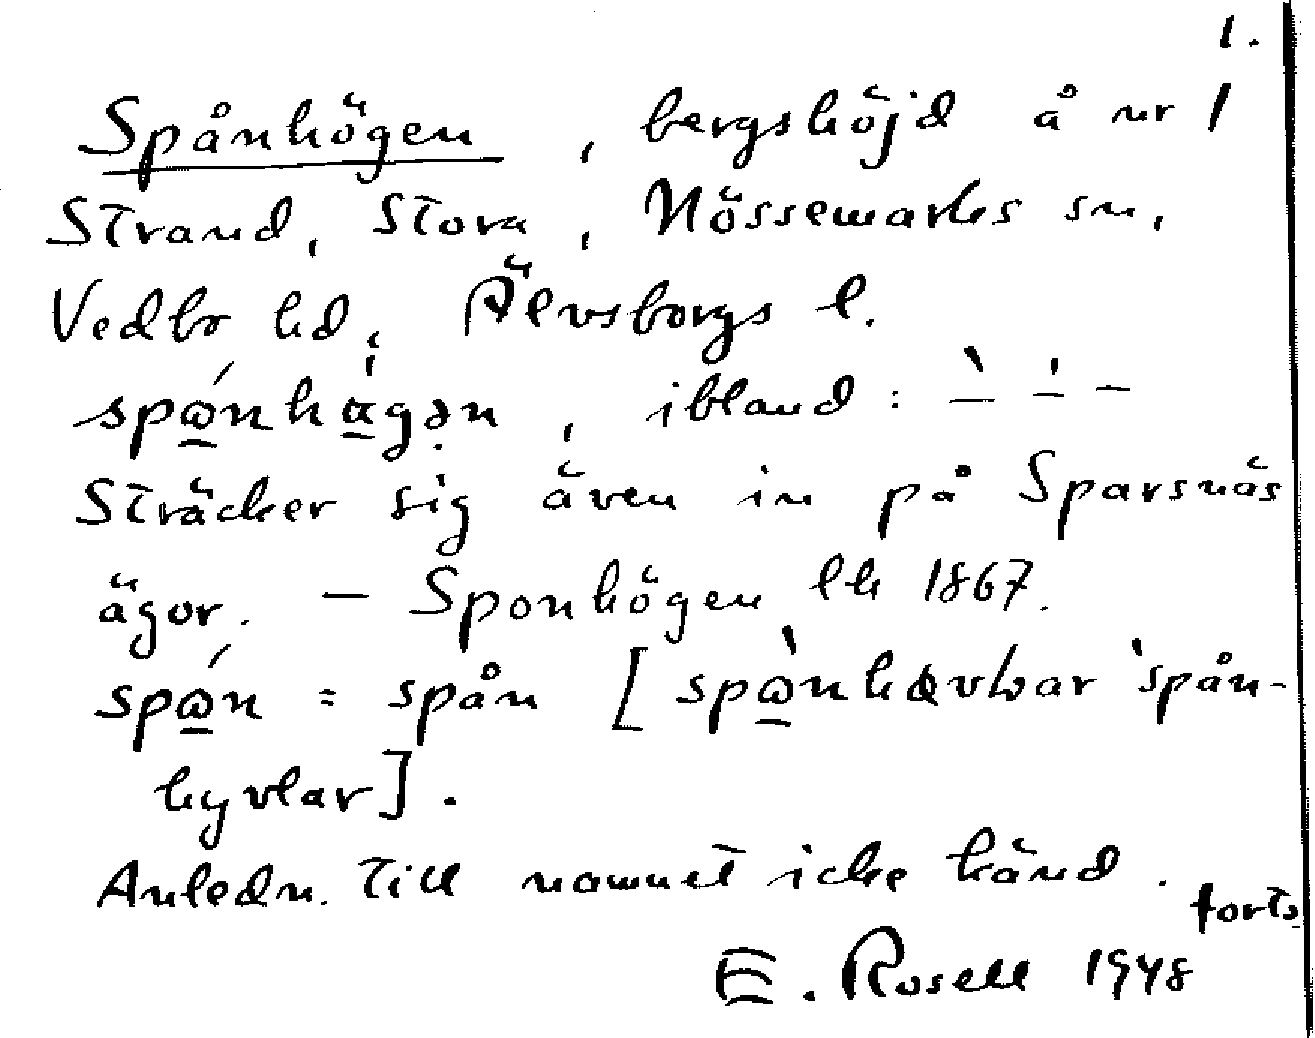 1.
Spånhögen, bergshöjd å nr 1
Strand, Stora, Nössemarks sn,
Vedbo hd, Älvsborgs l.
spώ̲nhα̲̍gən, ibland: –̀ –̍ –
Sträcker sig även in på Sparsnäs
ägor. – Sponhögen lh 1867.
spώ̲n = spån [spὼ̲nhɷvlvar 'spån-
hyvlar].
Anledn. till namnet icke känd.
forts
E. Rosell 1948